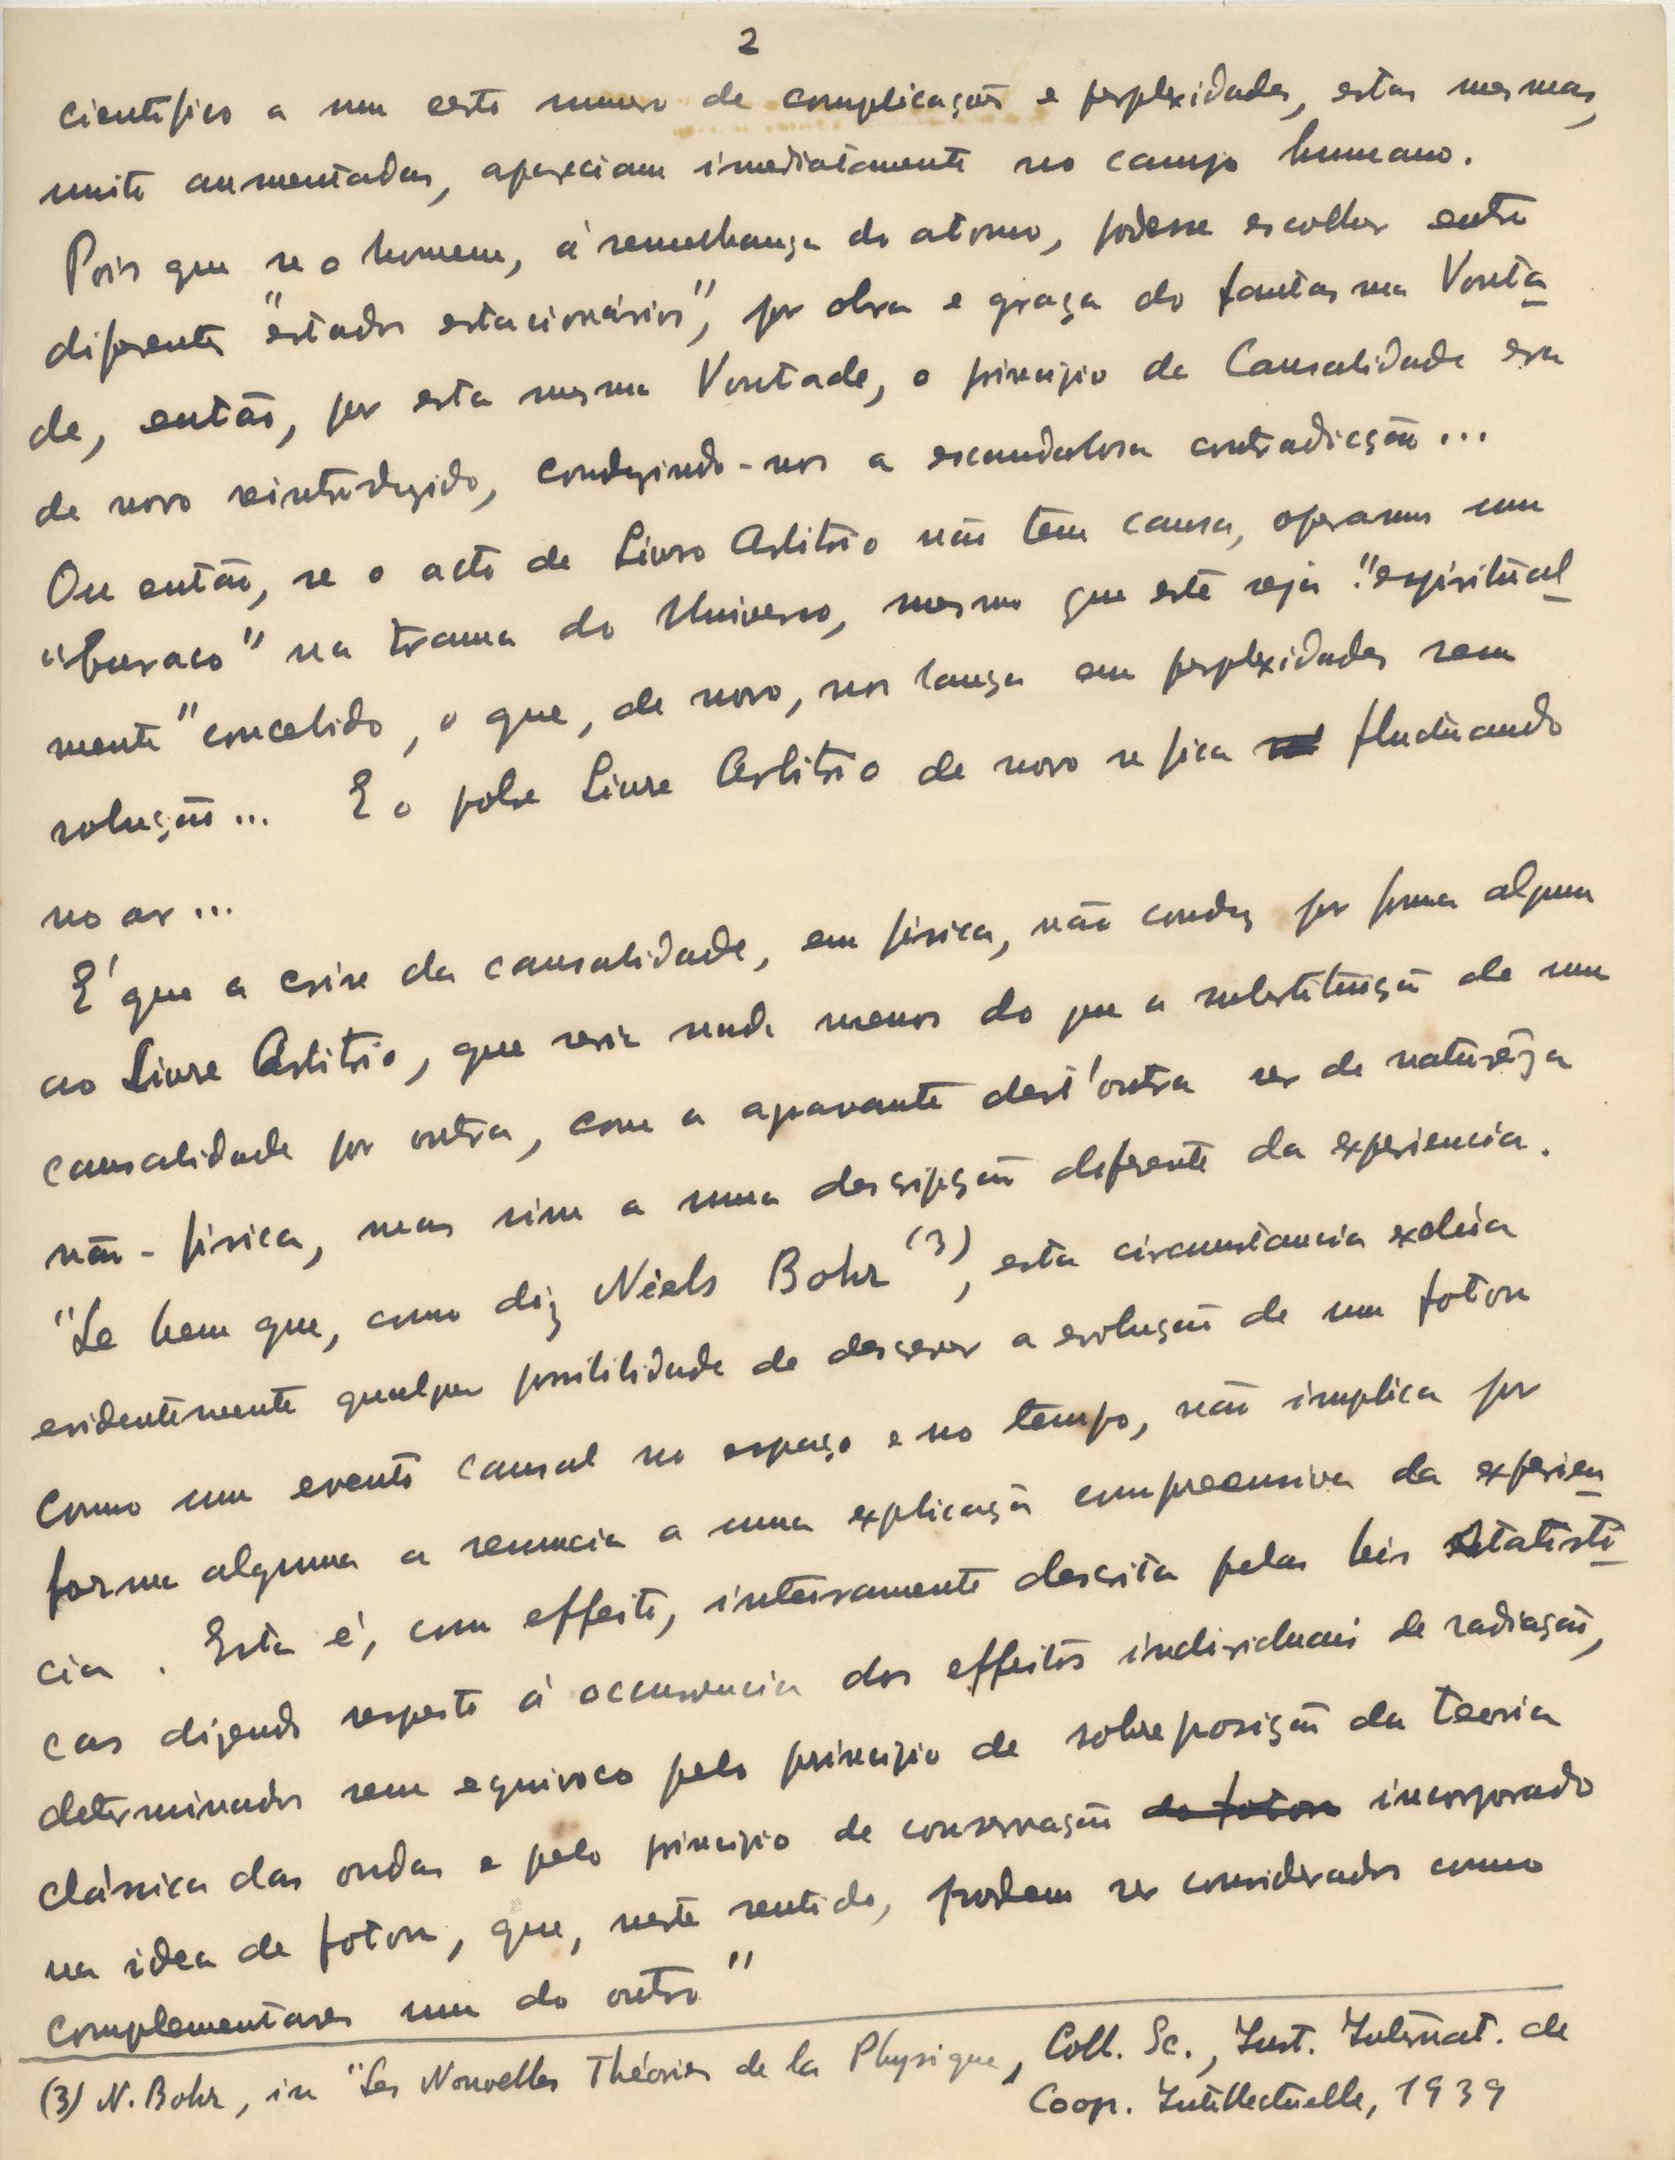 2
cientifico a um certo numero de complicações e perplexidades, estas mesmas,
muito aumentadas, apareciam imediatamente no campo humano.
Pois que se o homem, á semelhança do atomo, podesse escolher entre
diferentes "estados estacionários", por obra e graça do fantasma Vonta
de, então, por esta mesma Vontade, o principio de Causalidade era
de novo reintroduzido, conduzindo-nos a escandalosa contradicção...
Ou então, se o acto de Livre Arbitrio não tem causa, operamos um
"buraco" na trama do Universo, mesmo que este seja "espiritual
mente" concebido, o que, de novo, nos lança em perplexidades sem
solução... E o pobre Livre Arbitrio de novo se fica fluctuando
no ar...
É que a crise da causalidade, em fisica, não conduz por forma alguma
ao Livre Arbitrio, que seria nada menos do que a substituição de uma
causalidade por outra, com a agravante dest'outra ser de naturêza
não-fisica, mas sim a uma descripção diferente da experiencia.
"Se bem que, como diz Niels Bohr (3), esta circunstancia exclúa
evidentemente qualquer possibilidade de descrever a evolução de um foton
como um evento causal no espaço e no tempo, não implica por
forma alguma a renuncia a uma explicação compreensiva da experien
cia. Esta é, com effeito, inteiramente descrita pelas leis statisti
cas dizendo respeito á occurrencia dos effeitos individuais de radiação,
determinados sem equivoco pelo principio de sobreposição da teoria
clássica das ondas e pelo principio de conservação de foton incorporado
na idea de foton, que, neste sentido, podem ser considerados como
complementares um do outro"
(3) N. Bohr, in "Les Nouvelles Théories de la Physique", Coll. Sc., Inst. Internat. de
Coop. Intellectuelle, 1939